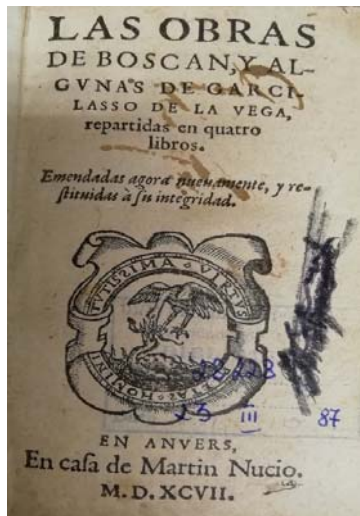 LAS OBRAS
DE BOSCAN, Y AL-
GVNAS DE GARCI-
LASSO DE LA VEGA,
repartidas en quatro
libros.
Emendadas agora nueuamente, y re-
stituidas à su integridad.
TVTISSIMA VIRTVS
PIETAS HOMINI
EN ANVERS,
En casa de Martin Nucio.
M. D. XCVII.
23 III 87